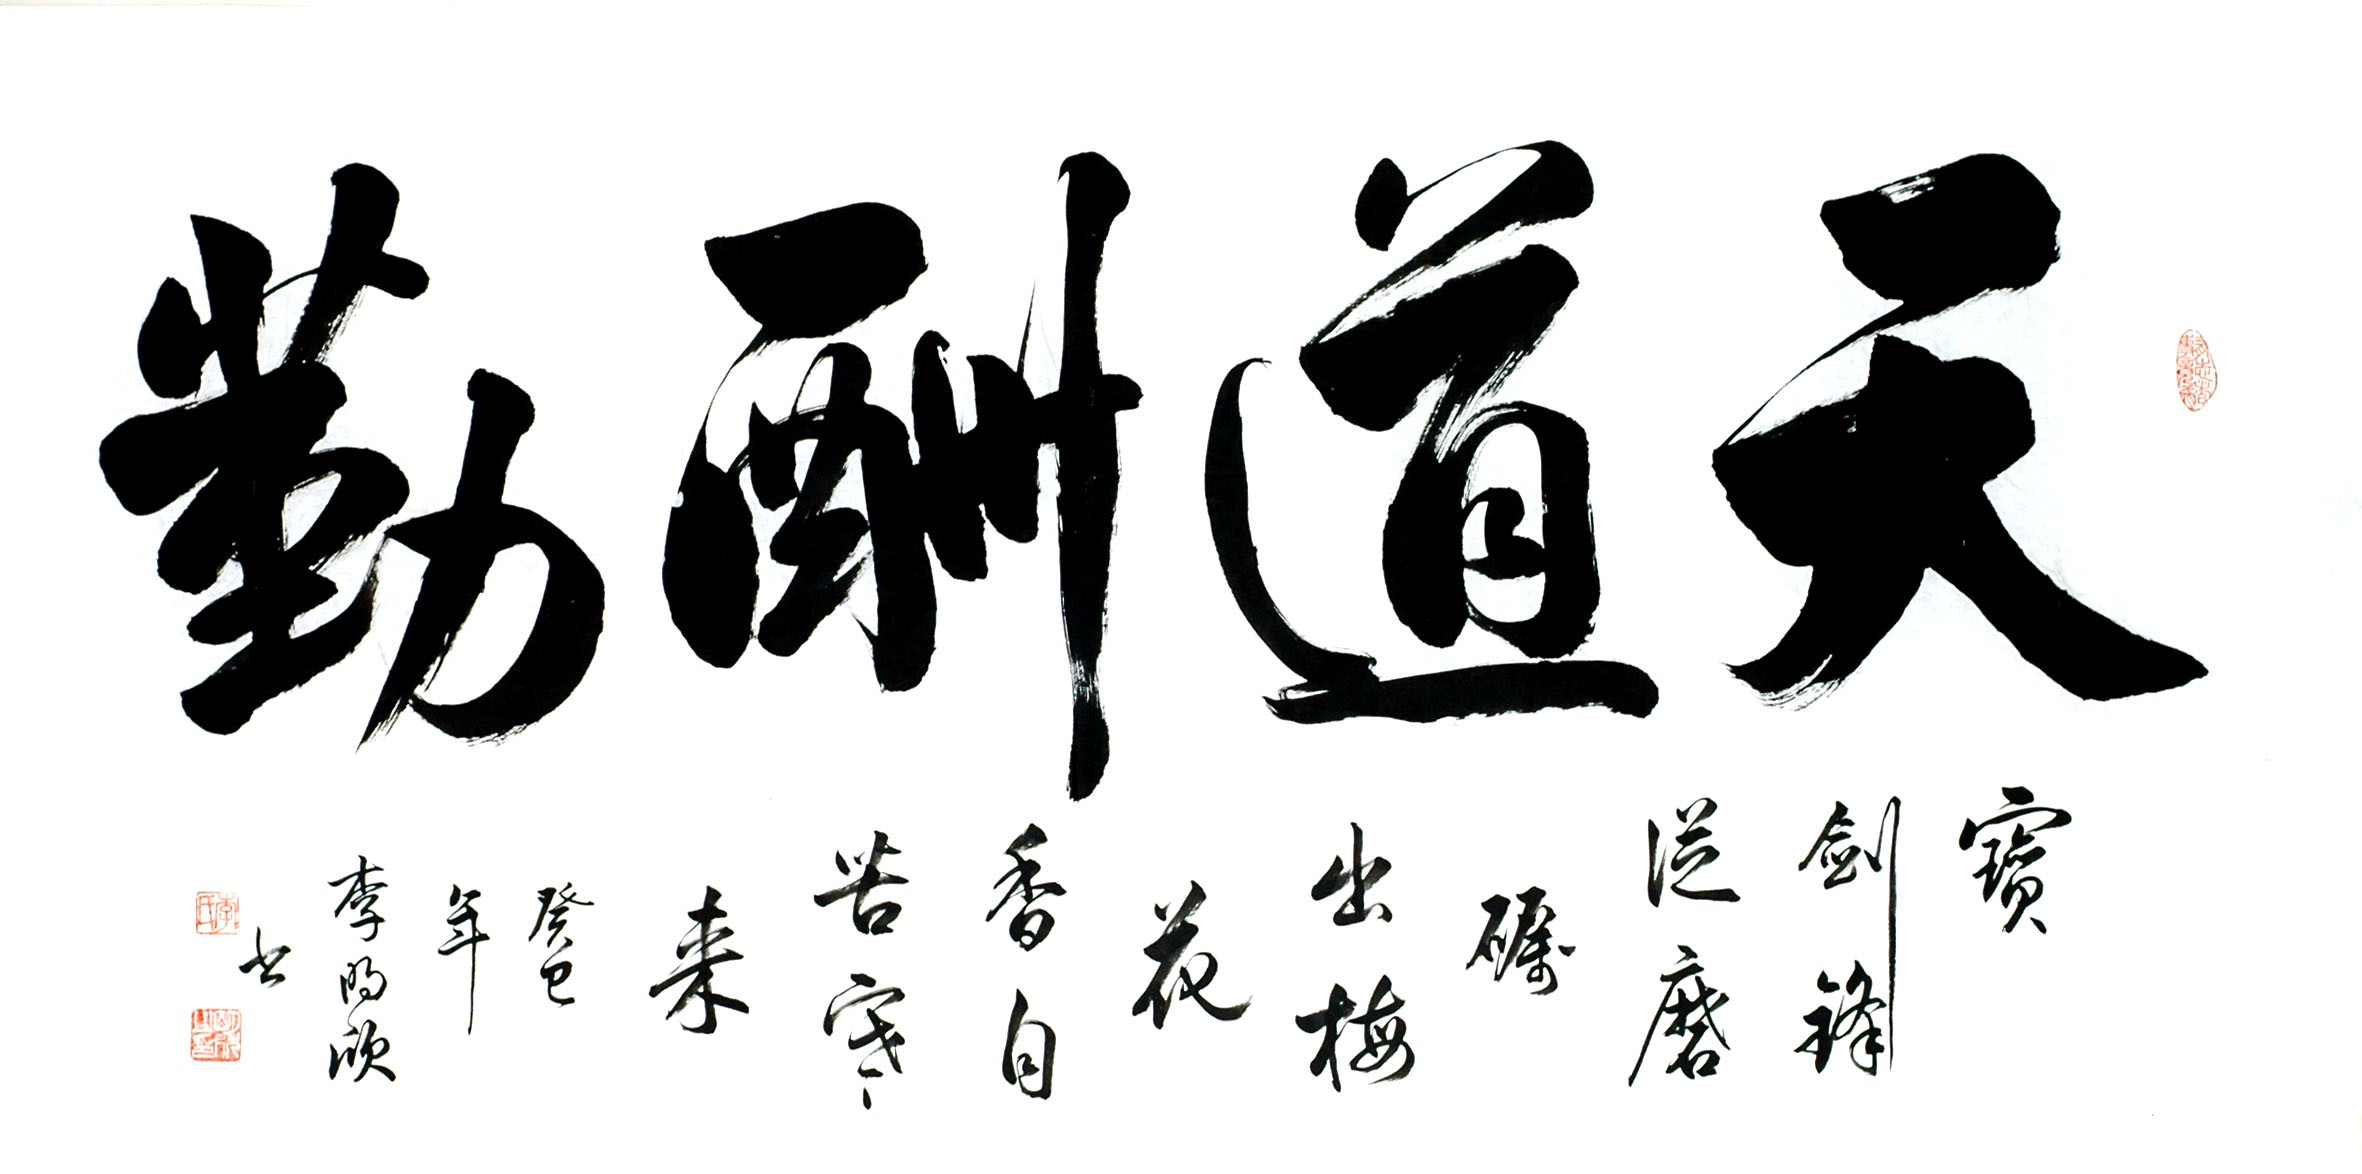 天道酬勤
寶
劍鋒
從磨
礪
出梅
花
香自
苦寒
来
癸巳
年
李明欣
书